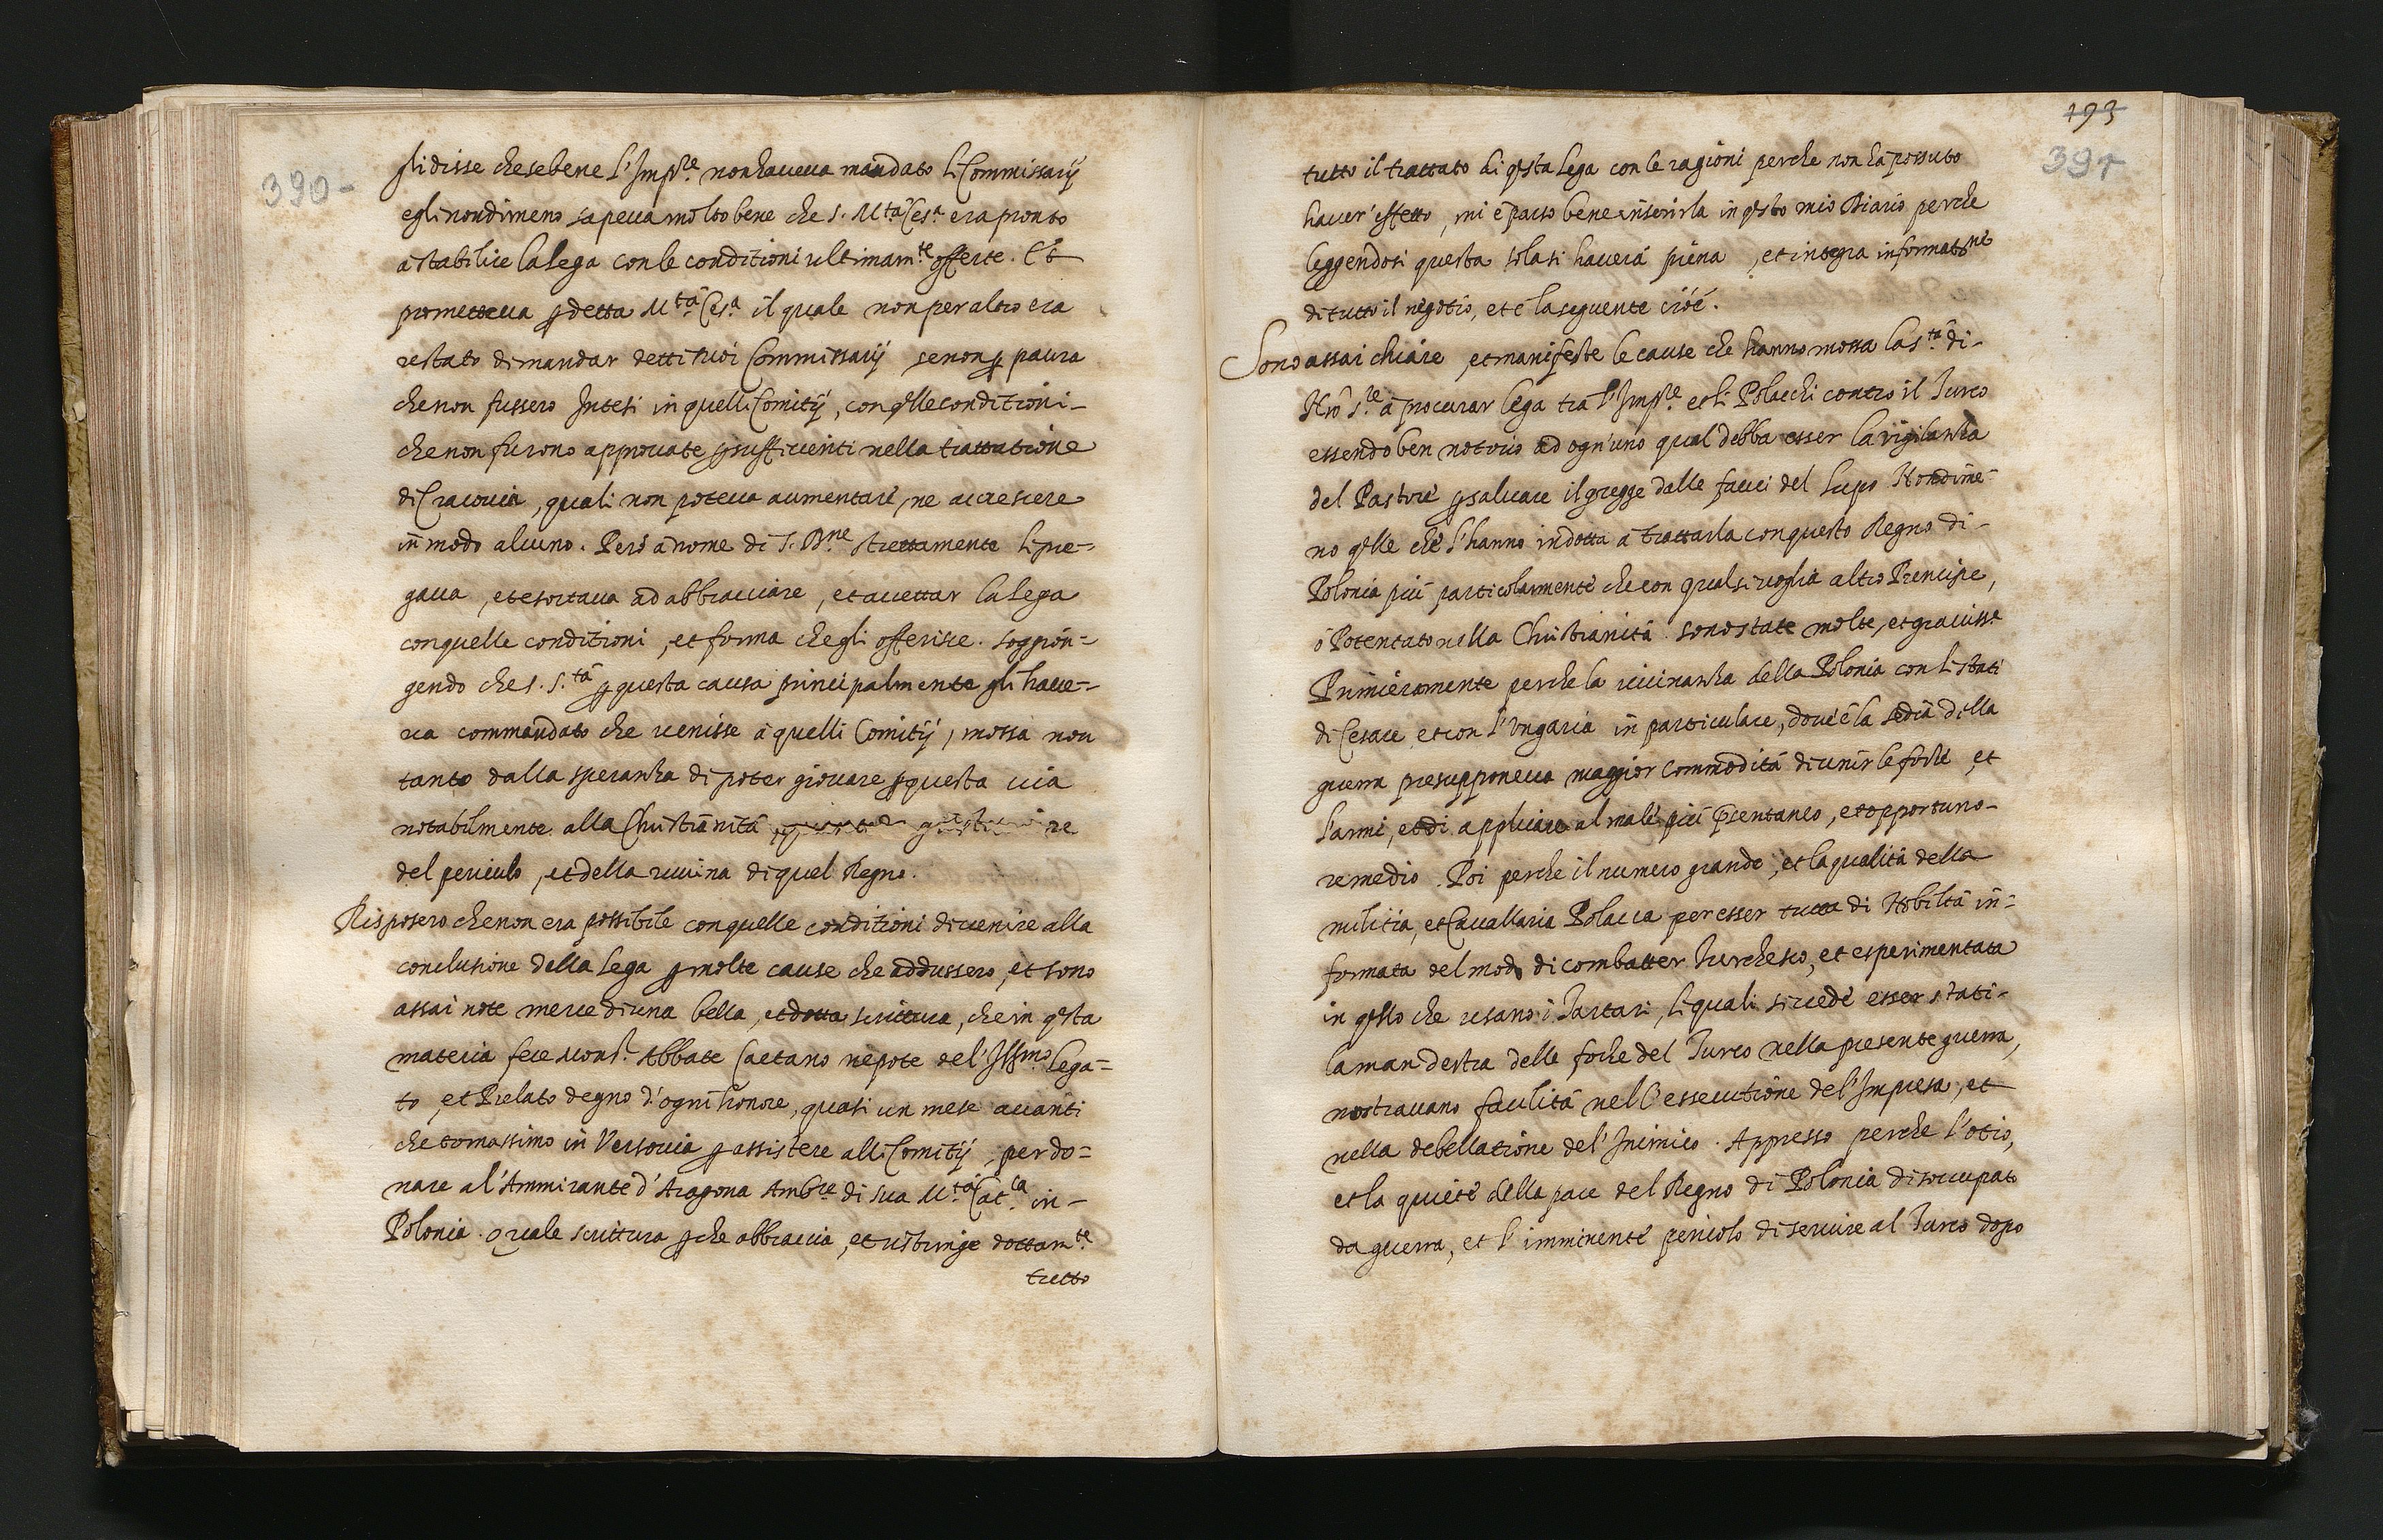 390-
gli disse che se bene l'Imp.re non haveva mandato li Commissarij
egli nondimeno sapeva molto bene che S. M.tà Ces.a era pronto
à stabilire la lega con le conditioni ultimam.te offerte. Et
prometteva p detta M.tà Ces.a il quale non per altro era
restato di mandar detti suoi Commissarij se non p paura
che non fussero Intesi in quelli Comitij, con qlle conditioni-
che non furono approvate p sufficienti nella trattatione
di Cracovia, quali non poteva aumentare, ne accrescere
in modo alcuno. Però à nome di S. B.ne strettamente li pre=
gava, et esortava ad abbracciare, et accettar la lega
con quelle conditioni, et forma che gli offerisce. soggion=
gendo che S. S.tà p questa causa principalmente gli have=
va commandato che venisse à quelli Comitij, mossa non
tanto dalla speranza di poter giovare p questa via
notabilmente alla Christianità re
del periculo, et della ruvina di quel Regno.
Risposero che non era possibile con quelle conditioni di venire alla
conclusione della lega p molte cause che addussero, et sono
assai note merce di una bella, et dotta scrittura, che in qsta
materia fece Mons.r Abbate Caetano nepote del'Ill.mo Lega=
to, et Prelato degno d'ogni honore, quasi un mese avanti
che tornassimo in Versovia p assistere alli Comitij, per do=
nare al'Ammirante d'Aragona Amb.re di sua M.tà Cat.ca in-
Polonia. Quale scrittura p che abbraccia, et ristringe dottam.te
tutto
193
391
tutto il trattato di qsta Lega con le ragioni perche non hà possuto
haver' effetto, mi è parso bene inserirla in qsto mio Diario perche
leggendosi questa sola si haverà piena, et integra informat.ne
di tutto il negotio, et è la seguente cioè.
Sono assai chiare, et manifeste le cause che hanno mossa la S.tà di-
Nrõ S.re à procurar lega tra l'Imp.re et li Polacchi contro il Turco
essendo ben notorio ad ogn'uno qual debba esser la vigilanza
del Pastore p salvare il gregge dalle fauci del Lupo Nondime=
no qlle che l'hanno indotta à trattarla con questo Regno di-
Polonia più particolarmente che con qualsivoglia altro Prencipe,
ò Potentato nella Christianità sono state molte, et graviss.e
Primieramente perche la vicinanza della Polonia con li stati
di Cesare, et con l'Ungaria in particulare, dove è la sedia della
guerra presupponeva maggior commodità di unir le forze, et
l'armi, et di applicare al male più p̃sentaneo, et opportuno-
remedio. Poi perche il numero grande, et la qualità della
militia, et Cavallaria Polacca per esser tutta di Nobiltà in=
formata del modo di combatter Turchesco, et esperimentata
in qsto che usano i Tartari, li quali si vede esser stati-
la man destra delle forze del Turco nella presente guerra,
mostravano facilità nell'essecutione del'Impresa, et
nella debellatione del'Inimico. Appresso perche l'otio,
et la quiete della pace del Regno di Polonia disoccupato
da guerra, et l'imminente pericolo di servire al Turco dopo